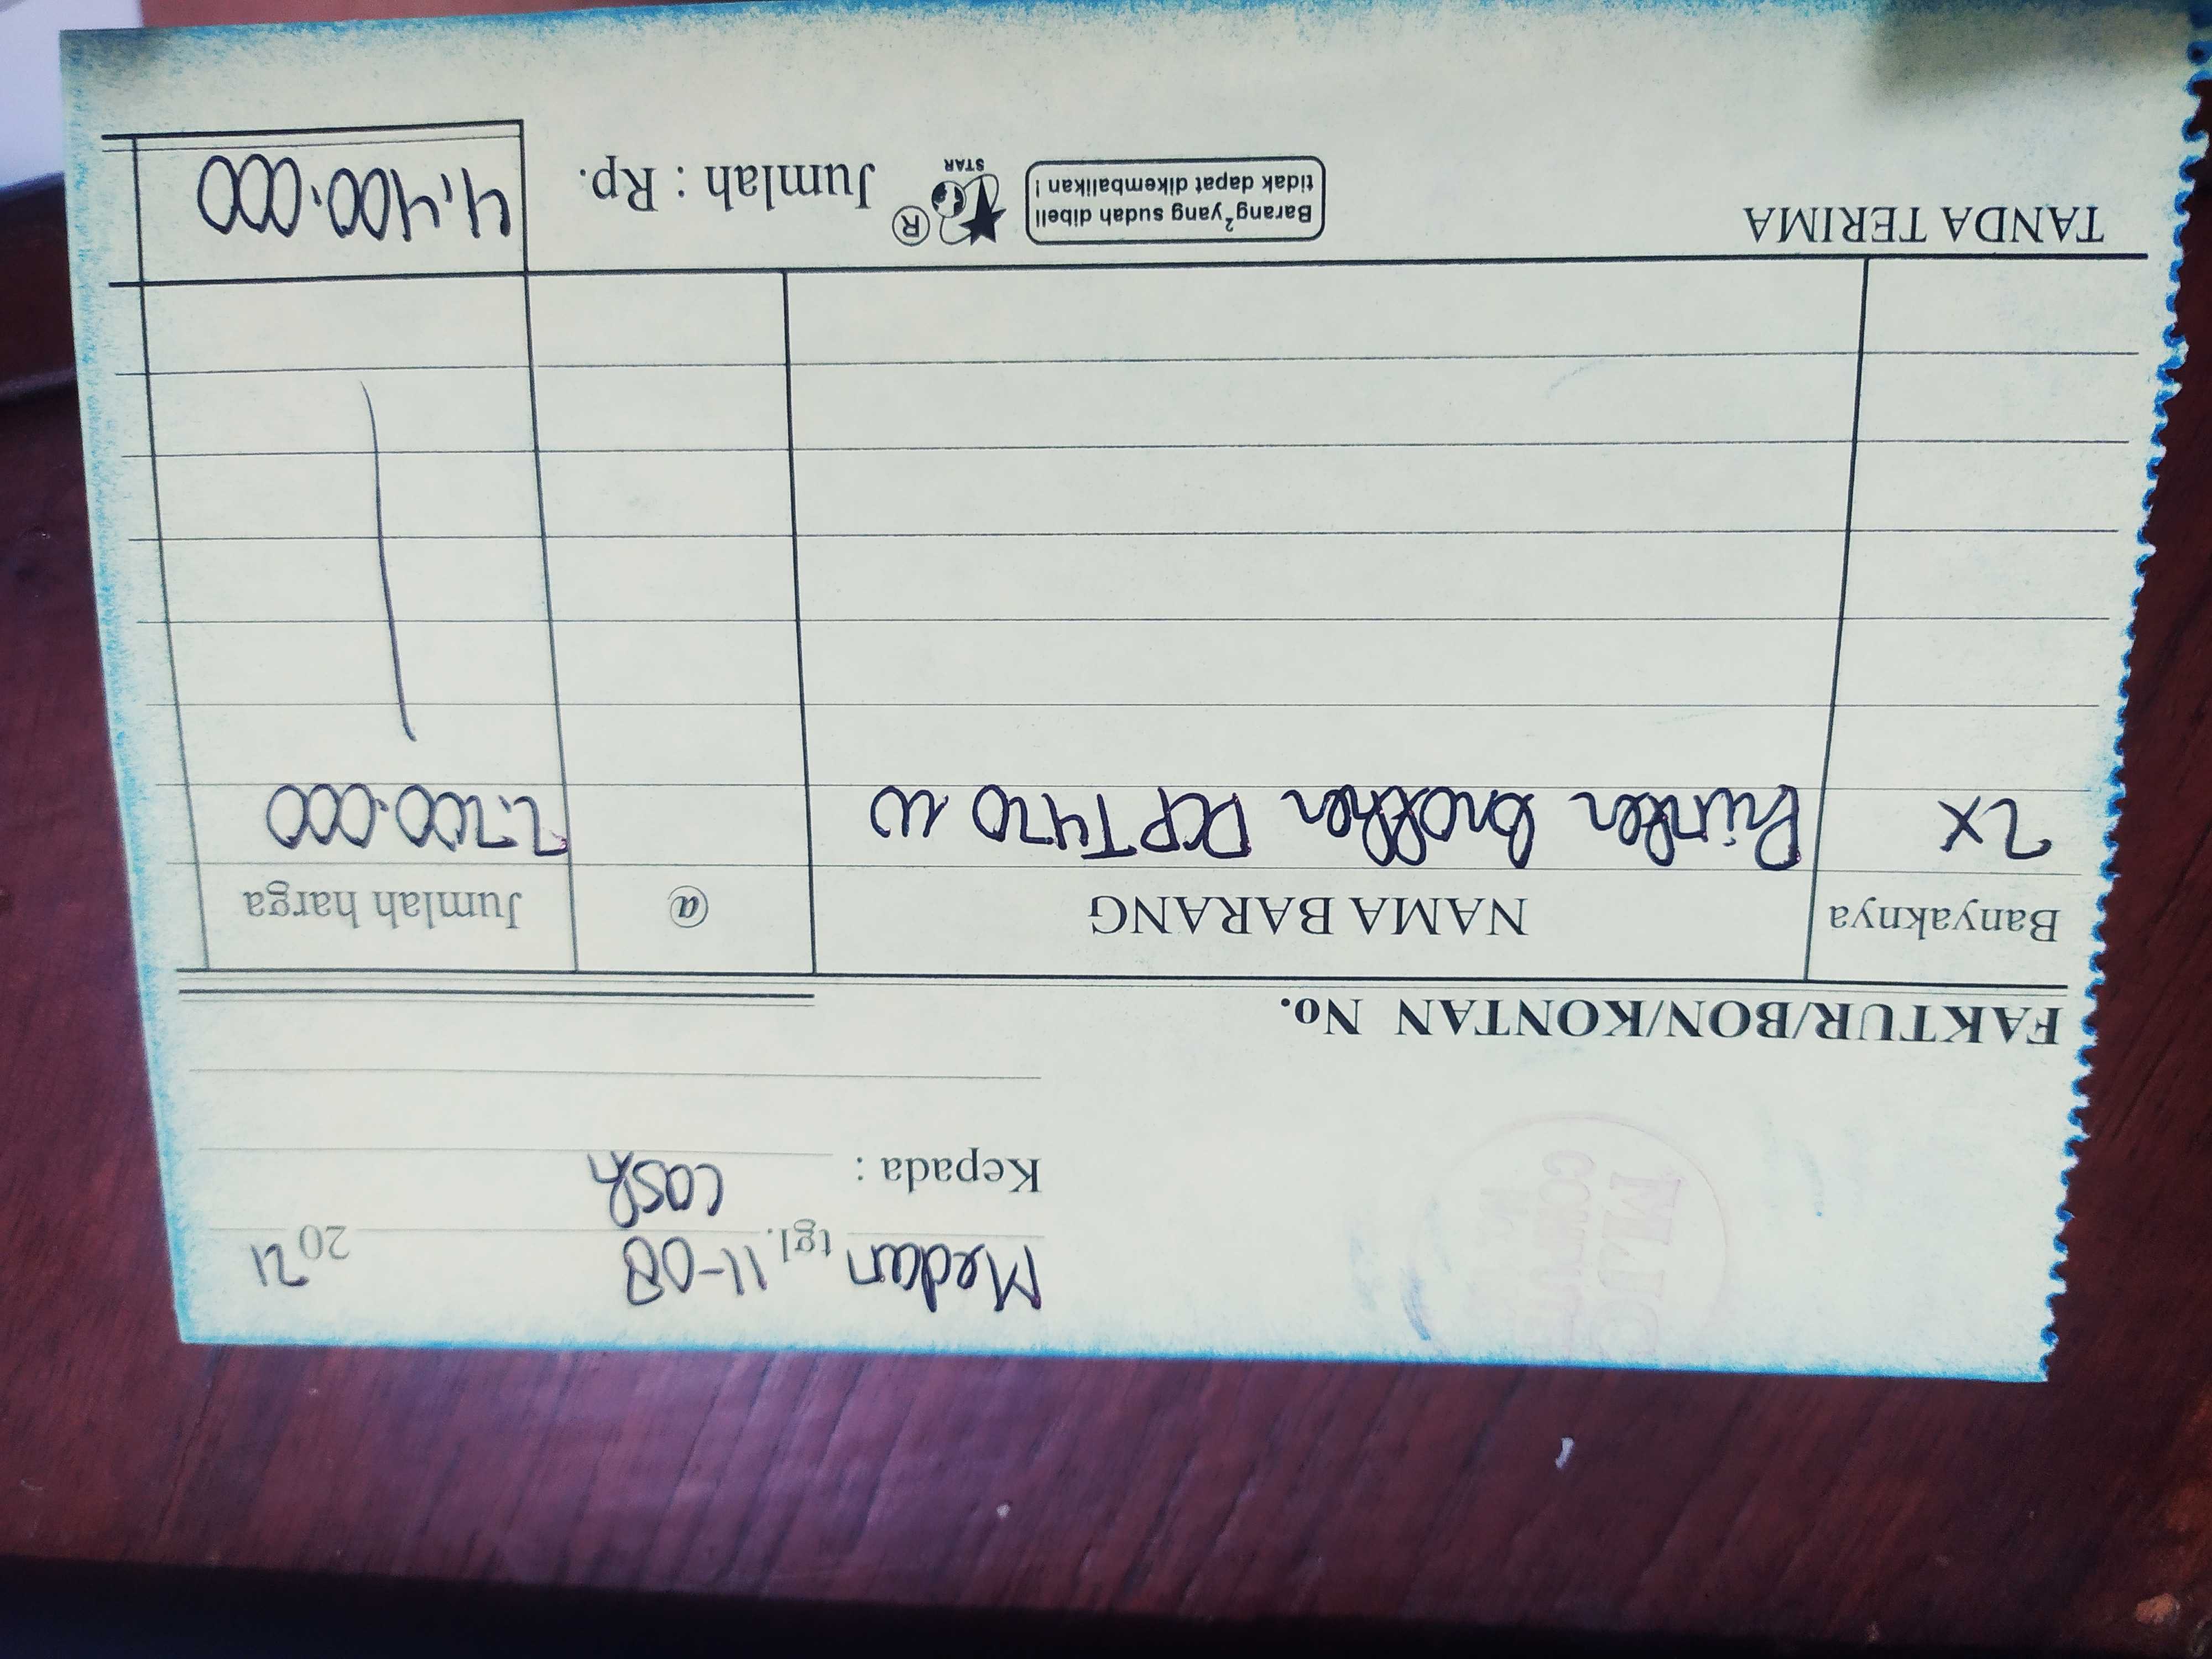 Medan tgl. 11-08 2021
Kepada : cash
FAKTUR/BON/KONTAN No.
Banyaknya NAMA BARANG @ Jumlah harga
2x Printer brother DCPT420 W 2.200.000
TANDA TERIMA
Barang² yang sudah dibeli
tidak dapat dikembalikan !
® STAR
Jumlah : Rp. 4,400.000